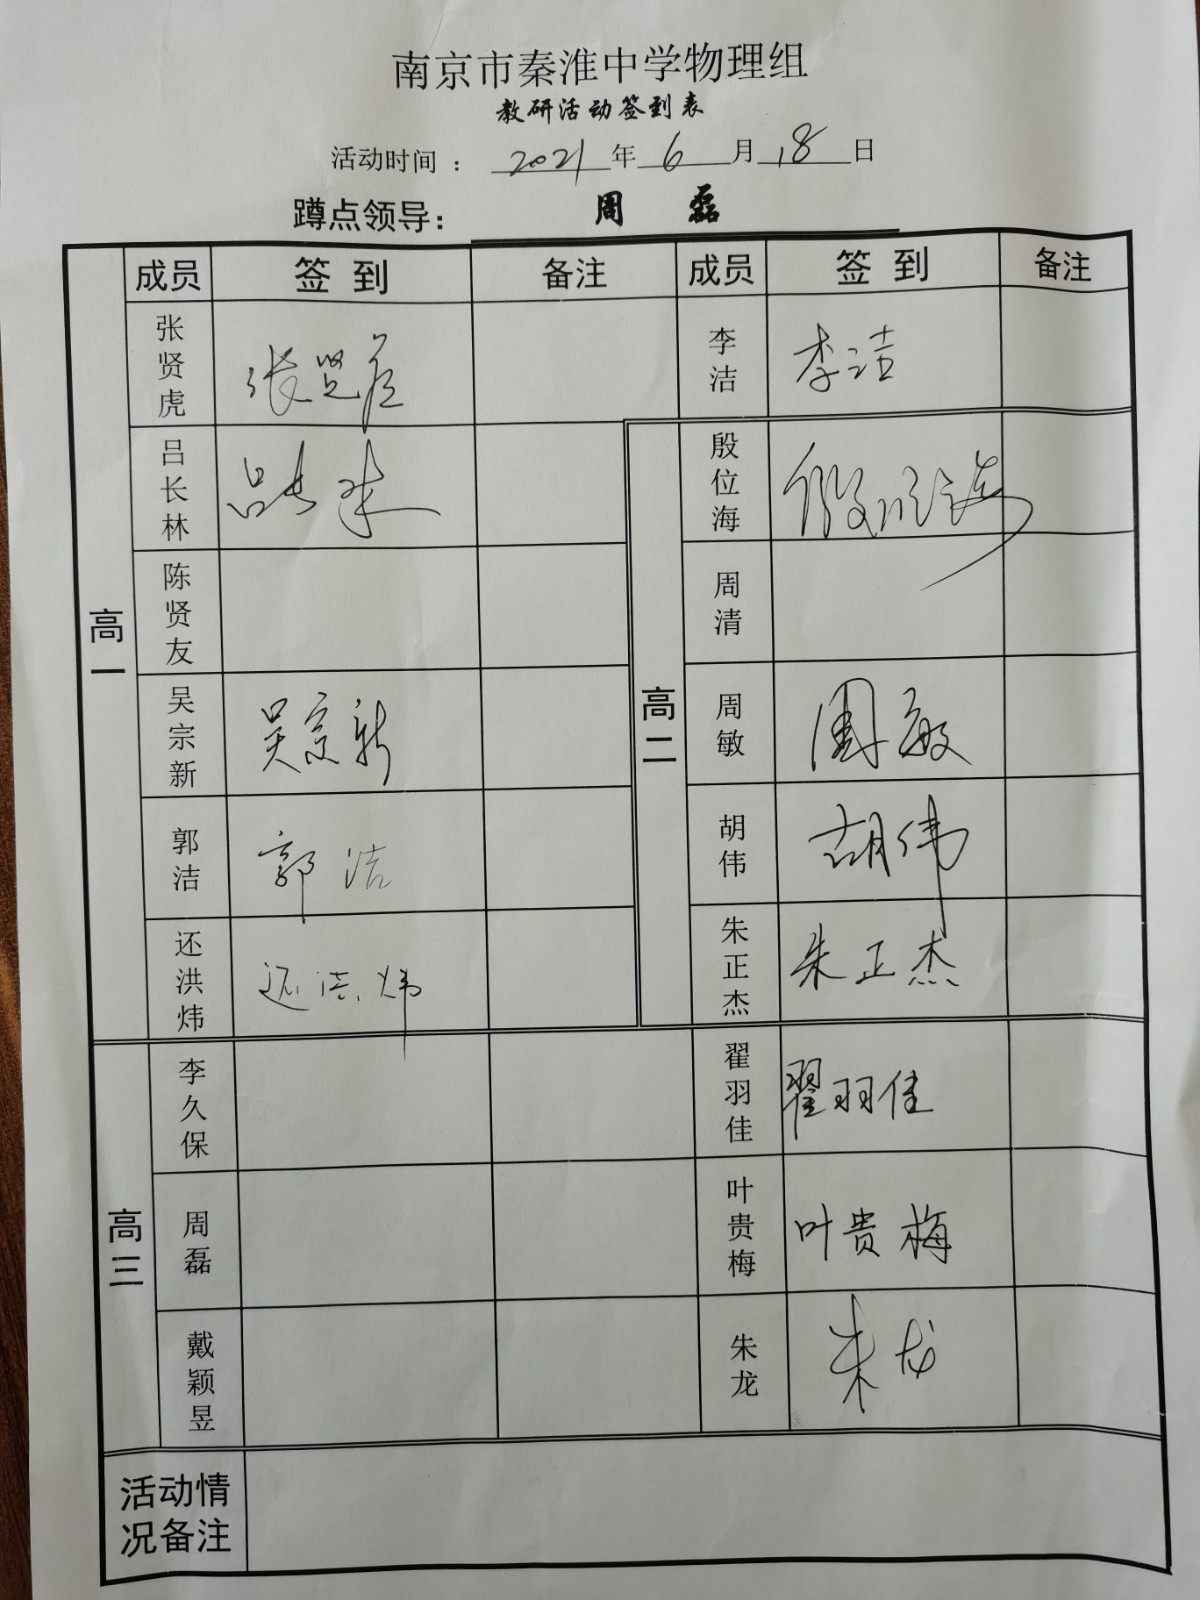 南京市秦淮中学物理组
教研活动签到表
活动时间： 2021 年 6 月 18 日
蹲点领导： 周 磊
成员 签到 备注 成员 签到 备注
高一
张贤虎 张贤虎
李洁 李洁
吕长林 吕长林
高二
殷位海 殷位海
陈贤友
周清
吴宗新 吴宗新
周敏 周敏
郭洁 郭洁
胡伟 胡伟
还洪炜 还洪炜
朱正杰 朱正杰
高三
李久保
翟羽佳 翟羽佳
周磊
叶贵梅 叶贵梅
戴颖昱
朱龙 朱龙
活动情
况备注